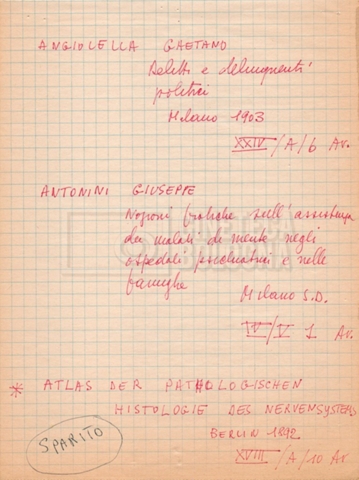 ANGIOLELLA GAETANO
Delitti e delinquenti
politici
Milano 1903
XXIV/A/6 Av.
ANTONINI GIUSEPPE
Nozioni pratiche sull'assistenza
dei malati di mente negli
ospedali psichiatrici e nelle
famiglie
Milano S.D.
IV/V 1 Av.
* ATLAS DER PATHOLOGISCHEN
HISTOLOGIE DES NERVENSYSTEMS
BERLIN 1892
SPARITO
XVIII/A/10 Av